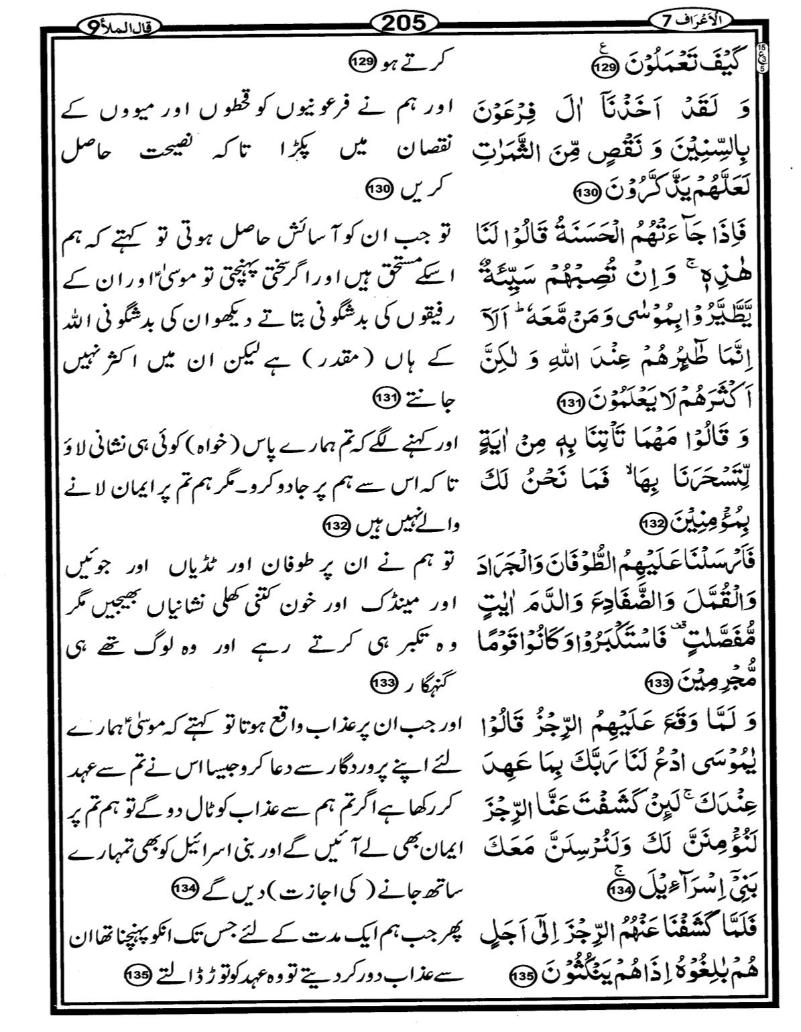 الاعراف 7
205
قال الملأ 9
كَيْفَ تَعْمَلُوْنَ ﴿129﴾
وَ لَقَدْ اَخَذْنَاۤ اٰلَ فِرْعَوْنَ
بِالسِّنِيْنَ وَ نَقْصٍ مِّنَ الثَّمَرٰتِ
لَعَلَّهُمْ يَذَّكَّرُوْنَ ﴿130﴾
فَاِذَا جَآءَتْهُمُ الْحَسَنَةُ قَالُوْا لَنَا
هٰذِهٖ ۚ وَ اِنْ تُصِبْهُمْ سَيِّئَةٌ
يَّطَّيَّرُوْا بِمُوْسٰى وَ مَنْ مَّعَهٗ ؕ اَلَاۤ
اِنَّمَا طٰٓئِرُهُمْ عِنْدَ اللّٰهِ وَ لٰكِنَّ
اَكْثَرَهُمْ لَا يَعْلَمُوْنَ ﴿131﴾
وَ قَالُوْا مَهْمَا تَاْتِنَا بِهٖ مِنْ اٰيَةٍ
لِّتَسْحَرَنَا بِهَا ۙ فَمَا نَحْنُ لَكَ
بِمُؤْمِنِيْنَ ﴿132﴾
فَاَرْسَلْنَا عَلَيْهِمُ الطُّوْفَانَ وَ الْجَرَادَ
وَ الْقُمَّلَ وَ الضَّفَادِعَ وَ الدَّمَ اٰيٰتٍ
مُّفَصَّلٰتٍ ۟ فَاسْتَكْبَرُوْا وَ كَانُوْا قَوْمًا
مُّجْرِمِيْنَ ﴿133﴾
وَ لَمَّا وَقَعَ عَلَيْهِمُ الرِّجْزُ قَالُوْا
يٰمُوْسَى ادْعُ لَنَا رَبَّكَ بِمَا عَهِدَ
عِنْدَكَ ۚ لَئِنْ كَشَفْتَ عَنَّا الرِّجْزَ
لَنُؤْمِنَنَّ لَكَ وَ لَنُرْسِلَنَّ مَعَكَ
بَنِيْۤ اِسْرَآءِيْلَ ﴿134﴾
فَلَمَّا كَشَفْنَا عَنْهُمُ الرِّجْزَ اِلٰۤى اَجَلٍ
هُمْ بٰلِغُوْهُ اِذَا هُمْ يَنْكُثُوْنَ ﴿135﴾
کرتے ہو ﴿129﴾
اور ہم نے فرعونیوں کو قحطوں اور میووں کے
نقصان میں پکڑا تاکہ نصیحت حاصل
کریں ﴿130﴾
تو جب ان کو آسائش حاصل ہوتی تو کہتے کہ ہم
اسکے مستحق ہیں اور اگر سختی پہنچتی تو موسیٰؑ اور ان کے
رفیقوں کی بدشگونی بتاتے دیکھو ان کی بدشگونی اللہ
کے ہاں (مقدر) ہے لیکن ان میں اکثر نہیں
جانتے ﴿131﴾
اور کہنے لگے کہ تم ہمارے پاس (خواہ) کوئی ہی نشانی لاؤ
تاکہ اس سے ہم پر جادو کرو۔ مگر ہم تم پر ایمان لانے
والے نہیں ہیں ﴿132﴾
تو ہم نے ان پر طوفان اور ٹڈیاں اور جوئیں
اور مینڈک اور خون کتنی کھلی نشانیاں بھیجیں مگر
وہ تکبر ہی کرتے رہے اور وہ لوگ تھے ہی
گنہگار ﴿133﴾
اور جب ان پر عذاب واقع ہوتا تو کہتے کہ موسیٰؑ ہمارے
لئے اپنے پروردگار سے دعا کرو جیسا اس نے تم سے عہد
کر رکھا ہے اگر تم ہم سے عذاب کو ٹال دو گے تو ہم تم پر
ایمان بھی لے آئیں گے اور بنی اسرائیل کو بھی تمہارے
ساتھ جانے (کی اجازت) دیں گے ﴿134﴾
پھر جب ہم ایک مدت کے لئے جس تک انکو پہنچنا تھا ان
سے عذاب دور کر دیتے تو وہ عہد کو توڑ ڈالتے ﴿135﴾